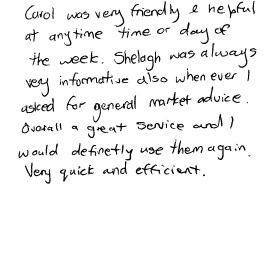 Carol was very friendly & helpful
at anytime time or day of
the week. Shelagh was always
very informative also when ever I
asked for general market advice.
Overall a great service and I
would definetly use them again.
Very quick and efficient.